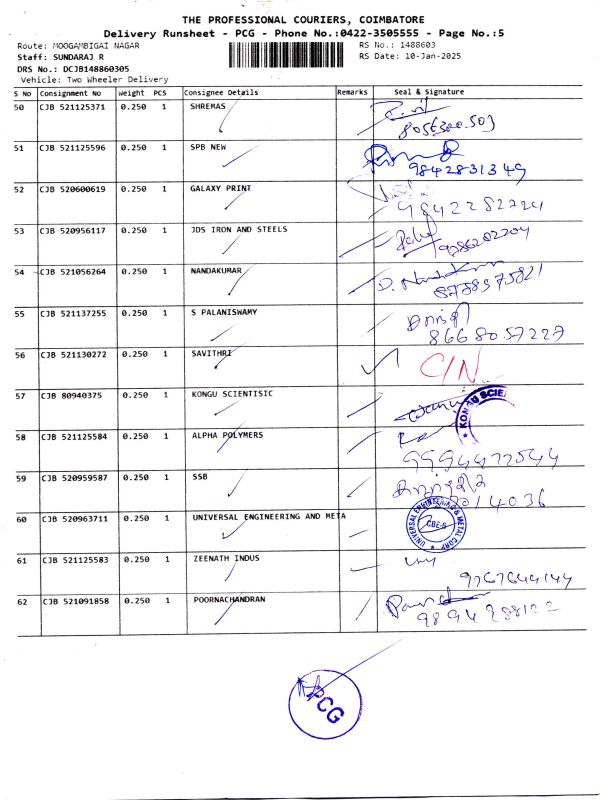 THE PROFESSIONAL COURIERS, COIMBATORE
Delivery Runsheet - PCG - Phone No.:0422-3505555 - Page No.:5
Route: MOOGAMBIGAI NAGAR RS No.: 1488603
Staff: SUNDARAJ R RS Date: 10-Jan-2025
DRS No.: DCJB148860305
Vehicle: Two Wheeler Delivery
S No Consignment No Weight PCS Consignee Details Remarks Seal & Signature
50 CJB 521125371 0.250 1 SHREMAS
51 CJB 521125596 0.250 1 SPB NEW
9842831349
52 CJB 520600619 0.250 1 GALAXY PRINT
9842282724
53 CJB 520956117 0.250 1 JDS IRON AND STEELS
54 CJB 521056264 0.250 1 NANDAKUMAR
55 CJB 521137255 0.250 1 S PALANISWAMY
8668057227
56 CJB 521130272 0.250 1 SAVITHRI C/N
57 CJB 80940375 0.250 1 KONGU SCIENTISIC
KONGU SCIEN
58 CJB 521125584 0.250 1 ALPHA POLYMERS
9994477544
59 CJB 520959587 0.250 1 SSB
60 CJB 520963711 0.250 1 UNIVERSAL ENGINEERING AND META
UNIVERSAL ENGINEERING & METAL CORP CBE-6
61 CJB 521125583 0.250 1 ZEENATH INDUS
9767644144
62 CJB 521091858 0.250 1 POORNACHANDRAN
PCG